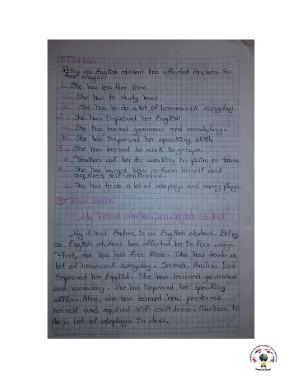 ① Outline
Being an English student has affected Andrea in
four ways:
She has less free time.
She has to study hard.
She has to do a lot of homework everyday.
She has improved her English
She has learned grammar and vocabulary.
She has improved her speaking skills
She has learned to work in groups.
Teachers ask her to working in pairs or teams
She has learned how perform herself and
acquired self-confidence
She has to do a lot of roleplays and many plays.
② First Draft
My friend Andrea, an English student
My friend Andrea, is an English student. Being
an English student has affected her in four ways.
First, she has less free time. She has to do a
lot of homework everyday. Second, Andrea has
improved her English. She has learned grammar
and vocabulary. She has improved her speaking
skills. Also, she has learned how perform
herself and acquired self confidence. She has to
do a lot of roleplays in class.